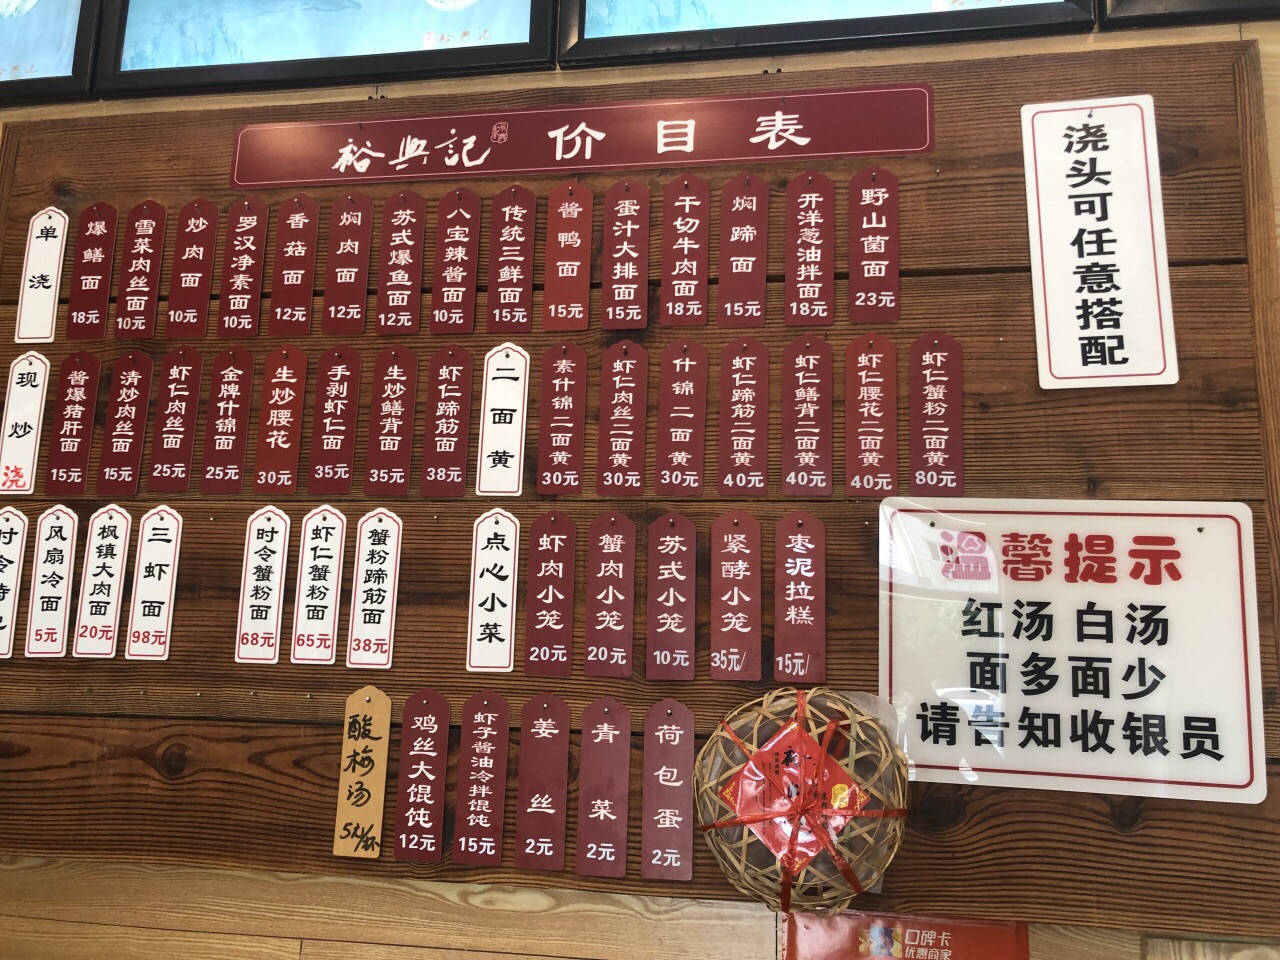 裕興記 价目表
浇头可任意搭配
单浇
爆鳝面 18元
雪菜肉丝面 10元
炒肉面 10元
罗汉净素面 10元
香菇面 12元
焖肉面 12元
苏式爆鱼面 12元
八宝辣酱面 10元
传统三鲜面 15元
酱鸭面 15元
蛋汁大排面 15元
干切牛肉面 18元
焖蹄面 15元
开洋葱油拌面 18元
野山菌面 23元
现炒浇
酱爆猪肝面 15元
清炒肉丝面 15元
虾仁肉丝面 25元
金牌什锦面 25元
生炒腰花 30元
手剥虾仁面 35元
生炒鳝背面 35元
虾仁蹄筋面 38元
二面黄
素什锦二面黄 30元
虾仁肉丝二面黄 30元
什锦二面黄 30元
虾仁蹄筋二面黄 40元
虾仁鳝背二面黄 40元
虾仁腰花二面黄 40元
虾仁蟹粉二面黄 80元
时令
风扇冷面 5元
枫镇大肉面 20元
三虾面 98元
时令蟹粉面 68元
虾仁蟹粉面 65元
蟹粉蹄筋面 38元
点心小菜
虾肉小笼 20元
蟹肉小笼 20元
苏式小笼 10元
紧酵小笼 35元/
枣泥拉糕 15元/
温馨提示
红汤白汤
面多面少
请告知收银员
酸梅汤 5元/杯
鸡丝大馄饨 12元
虾子酱油冷拌馄饨 15元
姜丝 2元
青菜 2元
荷包蛋 2元
口碑卡
优惠商家